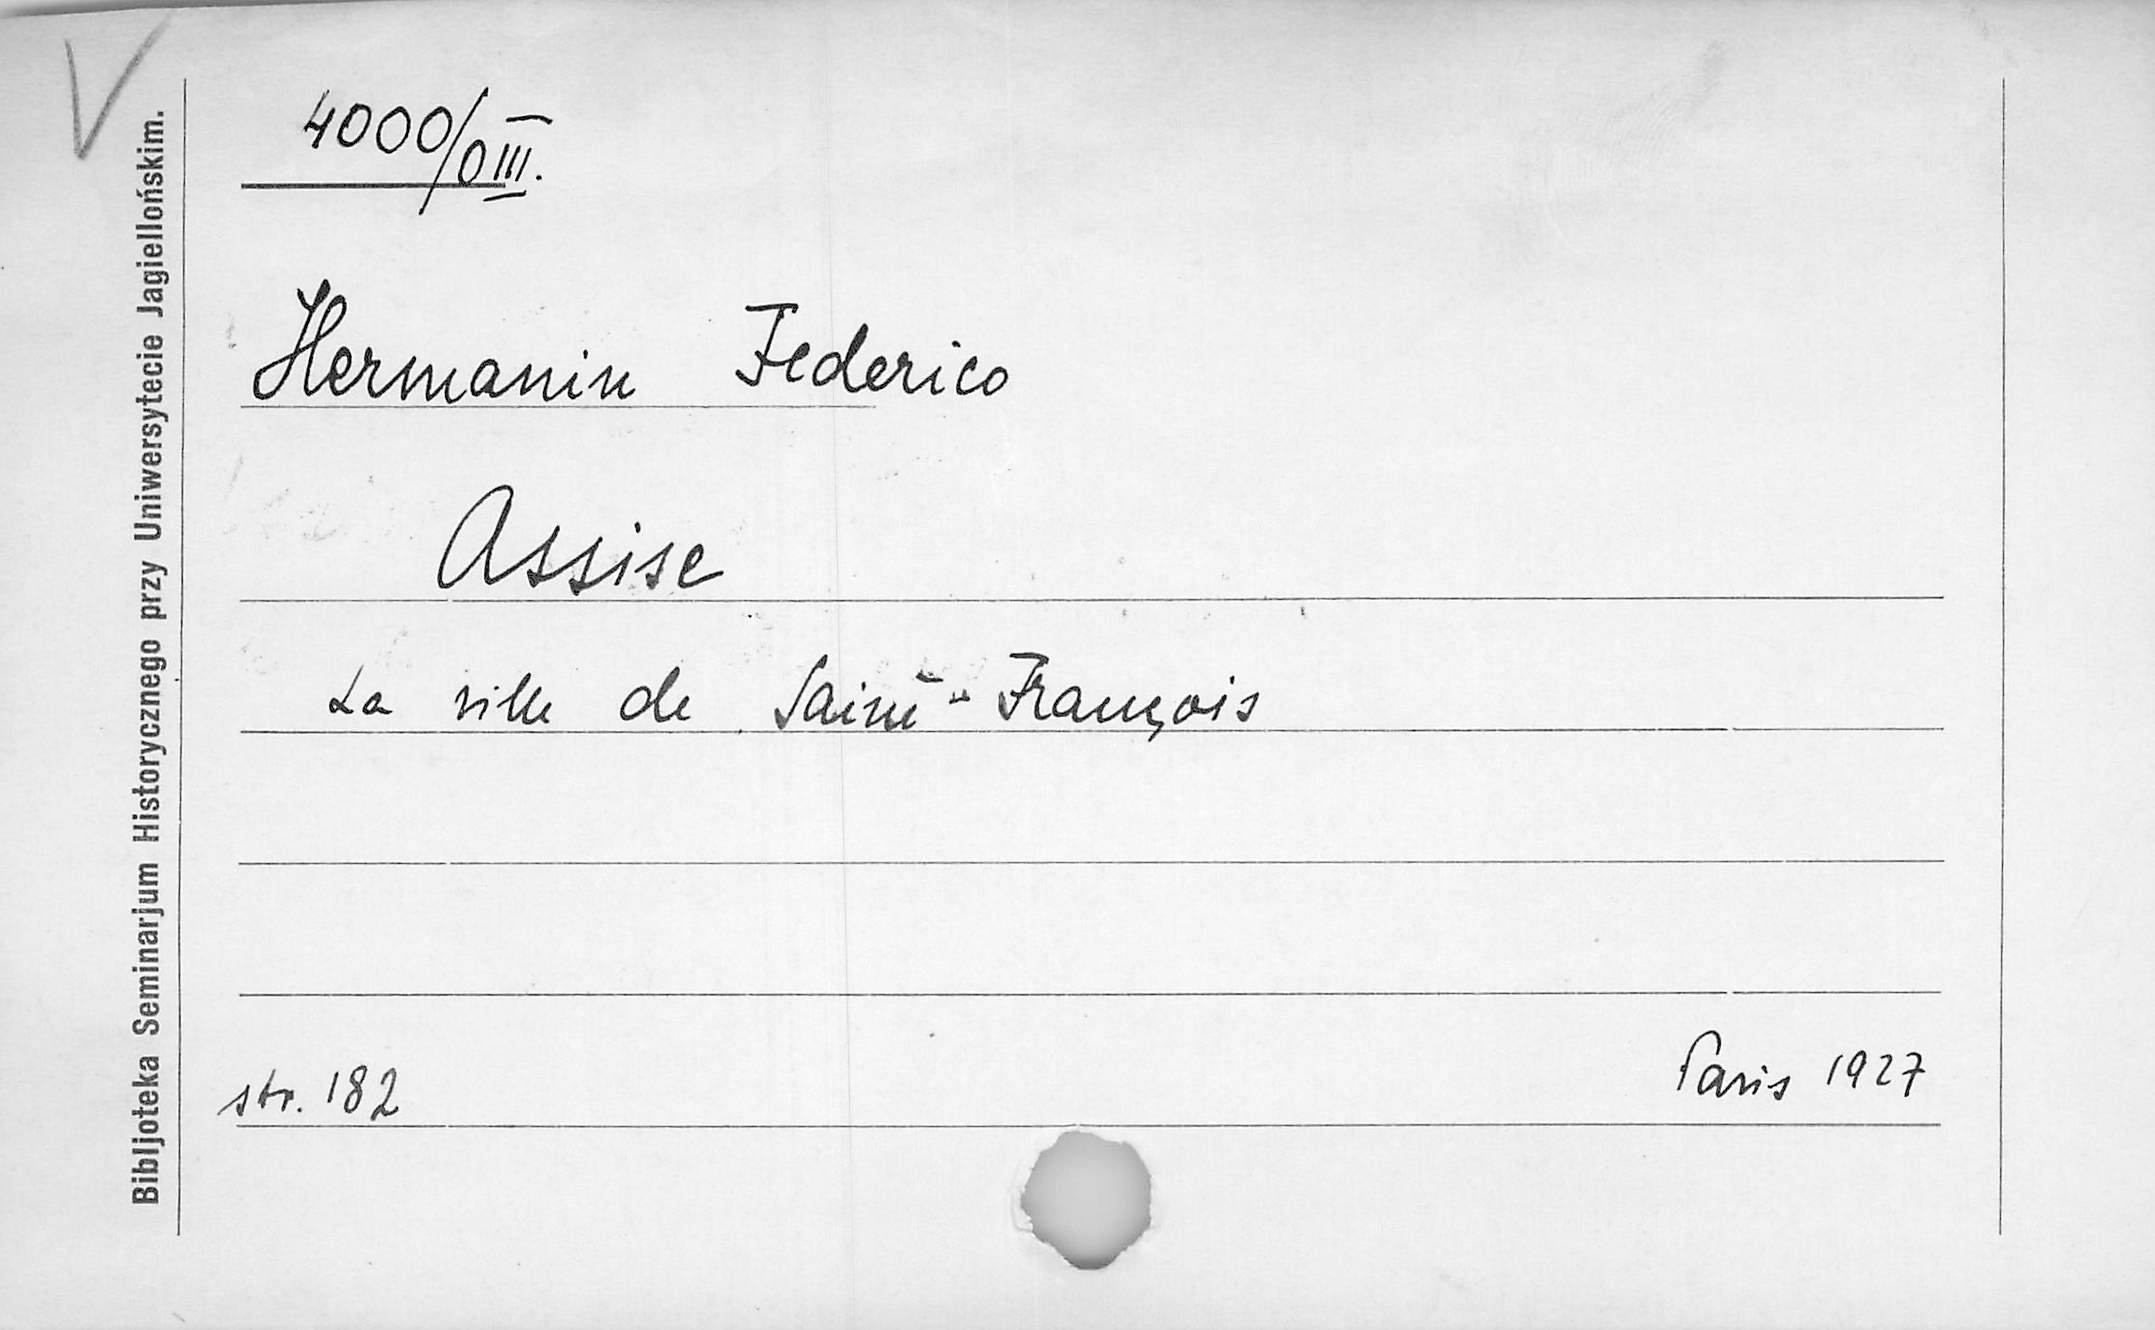 4000/0III.
Hermanin Federico
Assise
La ville de Saint-François
str. 182
Paris 1927
Bibljoteka Seminarjum Historycznego przy Uniwersytecie Jagiellońskim.